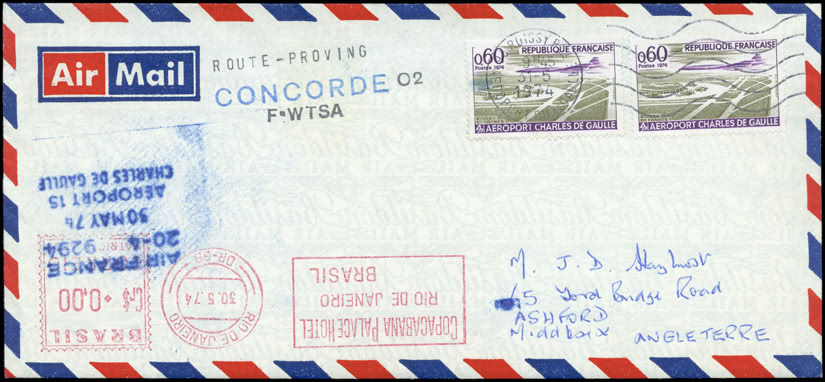 Air Mail
ROUTE-PROVING
CONCORDE 02
F-WTSA
ROISSY
9H45
31-5
1974
0,60 REPUBLIQUE FRANÇAISE
Postes 1974
AEROPORT CHARLES DE GAULLE
0,60 REPUBLIQUE FRANÇAISE
Postes 1974
AEROPORT CHARLES DE GAULLE
AIR FRANCE
20-4 9294
30 MAY 74
AEROPORT 15
CHARLES DE GAULLE
BRASIL
Cr$ + 0,00
RIO DE JANEIRO
30.5.74
DR-GB
COPACABANA PALACE HOTEL
RIO DE JANEIRO
BRASIL
M. J. D. Hayhurst
Ford Bridge Road
ASHFORD
Middlesex ANGLETERRE